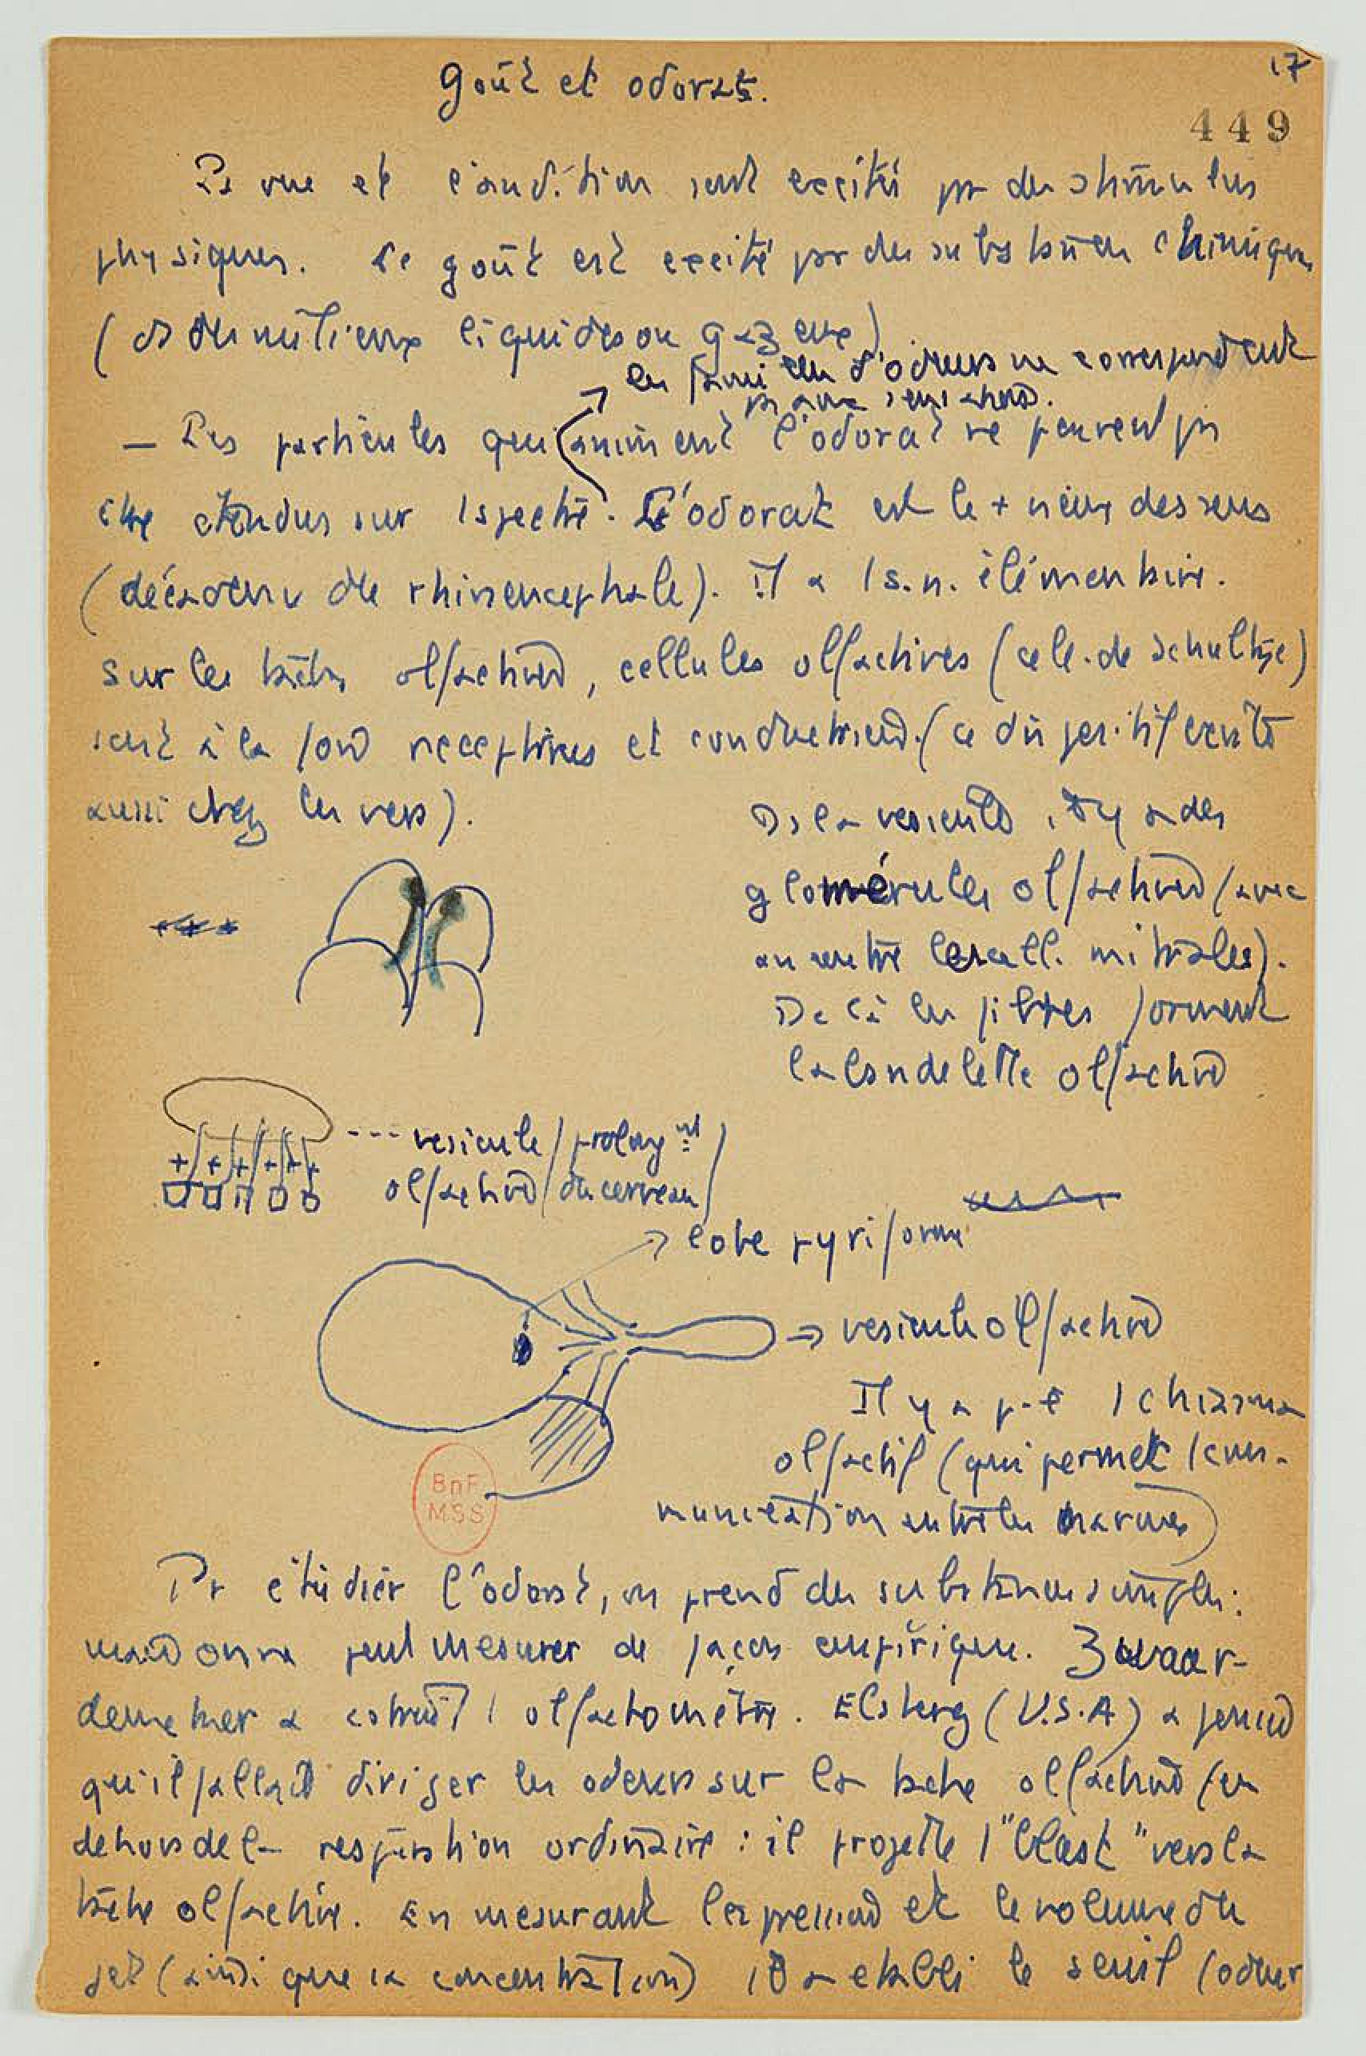 17
Goût et odorat.
449
La vue et l'audition sont excités par des stimulus
physiques. Le goût est excité par des substances chimiques
(ds des milieux liquides ou gazeux)
les familles d'odeurs ne correspondent
pas aux
— Les particules qui animent l'odorat ne peuvent pas
être étendus sur 1 spectre. L'odorat est le + vieux des sens
(découvenu du rhinencephale). il a 1 s.n. élémentaire.
sur les tâches olfactives, cellules olfactives (cell. de Schultze)
sont à la fois receptrices et conductrices. (ce dispositif existe
aussi chez les vers).
Ds la vesicule, il y a des
glomérules olfactives (avec
au centre les cell. mitrales).
De là les fibres forment
la bandelette olfactive
--- vesicule (prolongt
olfactive (du cerveau)
lobe pyriforme
vesicule olfactive
Il y a p-ê 1 chiasma
olfactif (qui permet 1 com-
munication entre les narines)
BnF
MSS
Pr étudier l'odorat, on prend des substances simples:
mais on ne peut mesurer de façon empirique. Zwaar-
demaker a cstruit 1 olfactomètre. Elsberg (U.S.A) a pensé
qu'il fallait diriger les odeurs sur la tache olfactive (en
dehors de la respiration ordinaire : il projette 1 "blast" vers la
tâche olfactive. En mesurant la pression et le volume du
jet (ainsi que la concentration) il a établi le seuil (odeur